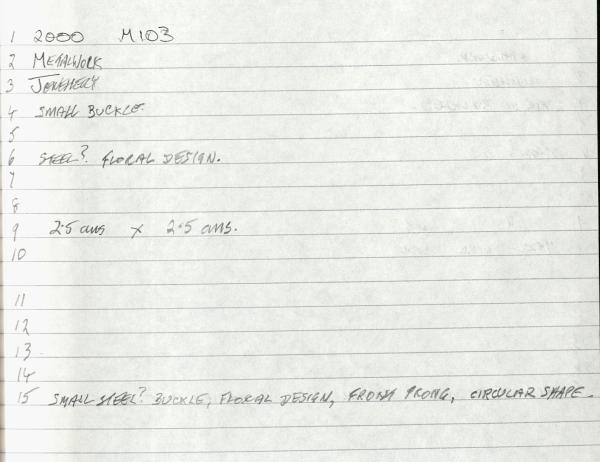 1 2000 M103
2 METALWORK
3 JEWELLERY
4 SMALL BUCKLE.
5
6 STEEL? FLORAL DESIGN.
7
8
9 2.5 cms x 2.5 cms.
10
11
12
13
14
15 SMALL STEEL? BUCKLE, FLORAL DESIGN, FRONT PRONG, CIRCULAR SHAPE.